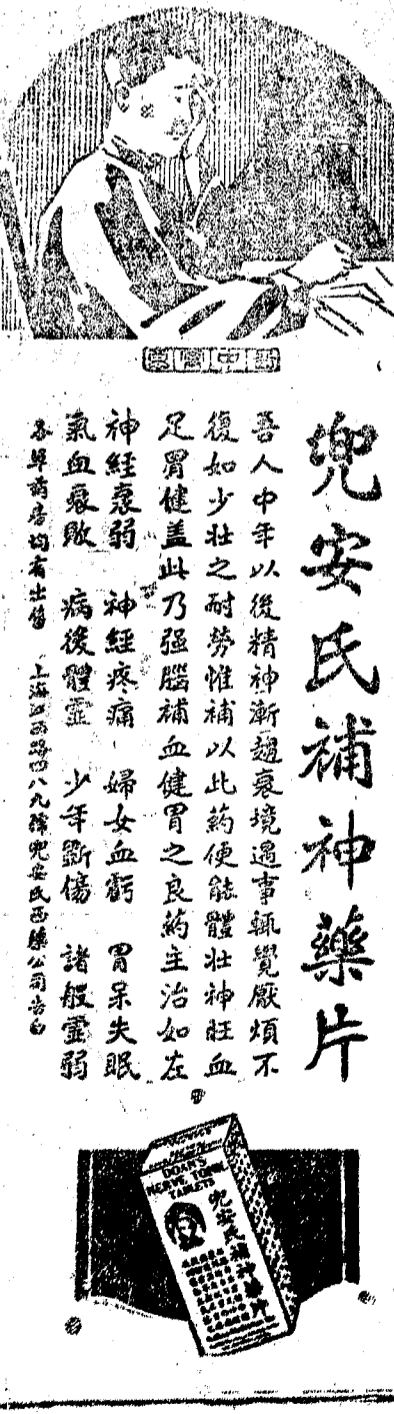 兜安氏補神藥片
吾人中年以後精神漸趨衰境遇事輒覺厭煩不
復如少壯之耐勞惟補以此葯便能體壯神旺血
足胃健盖此乃强腦補血健胃之良葯主治如左
神經衰弱 神經疼痛 婦女血虧 胃呆失眠
氣血衰敗 病後體虛 少年斵傷 諸般虛弱
各埠葯房均有出售 上海江西路四八九號兜安氏西藥公司告白
DOAN'S
NERVE TONIC
TABLETS
兜安氏補神藥片